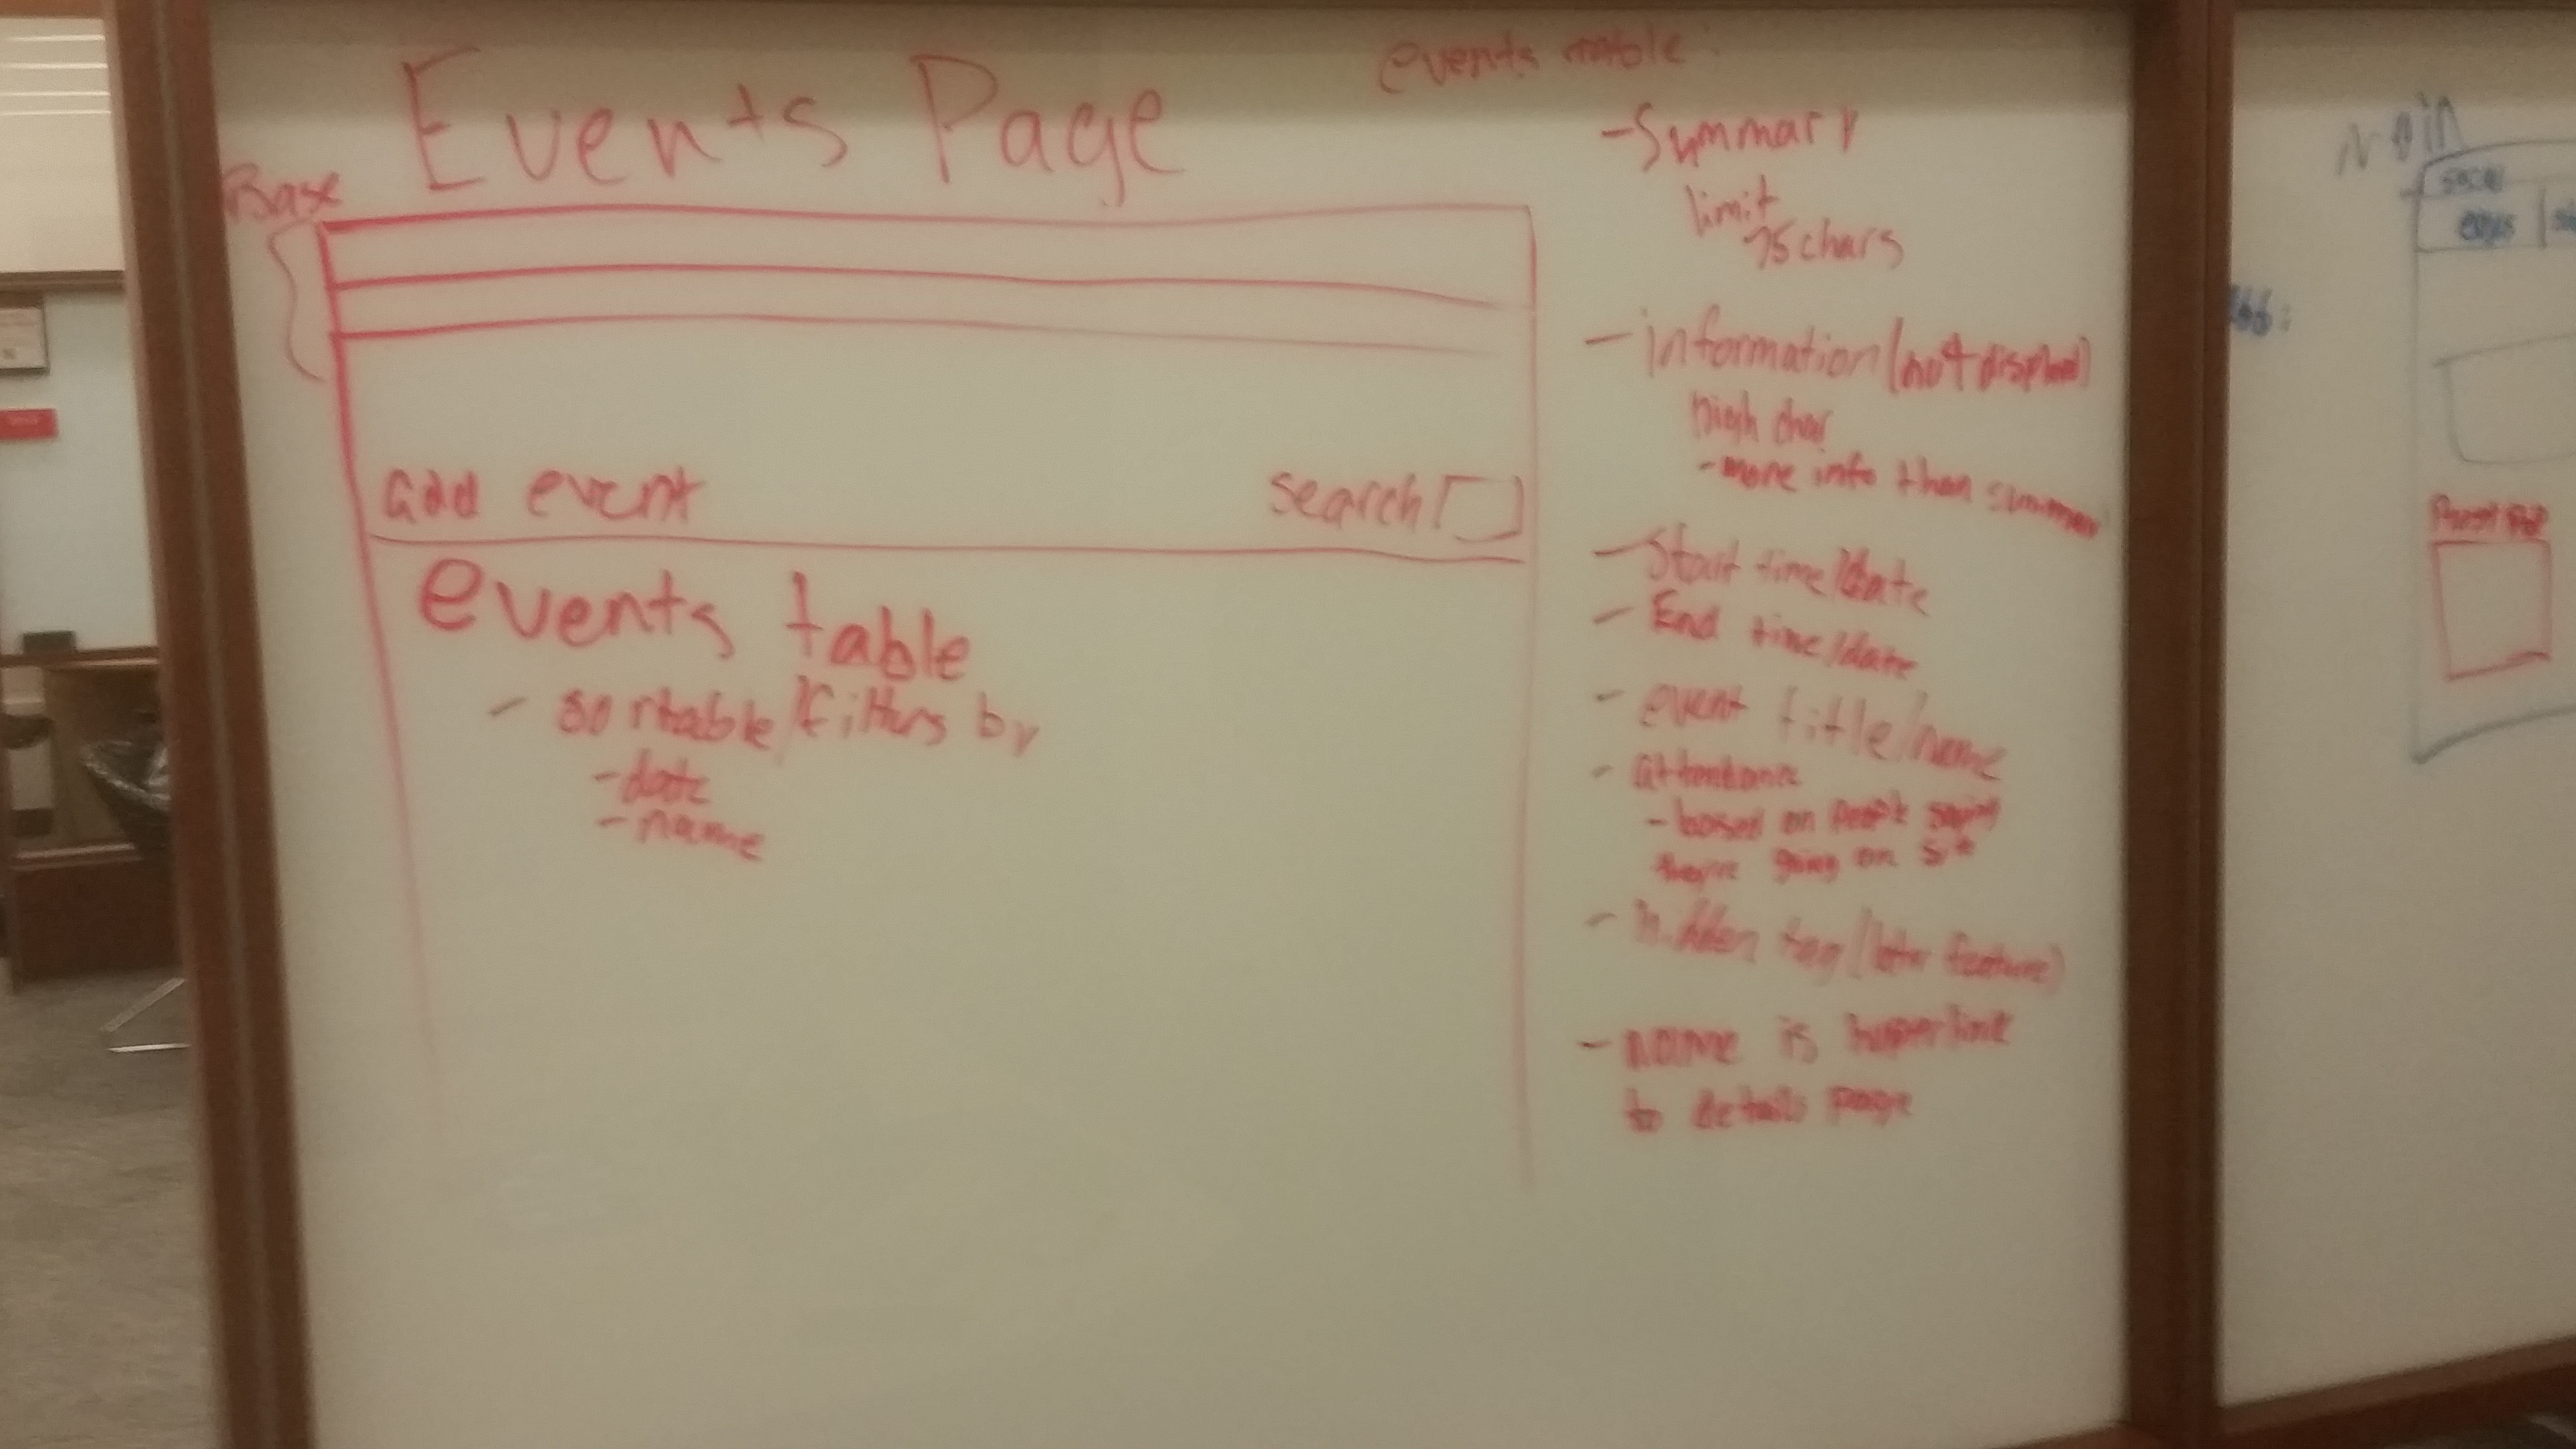 Events Page
Base
add event
search
events table
- sortable/filters by
- date
- name
events table:
- Summary
limit
75 chars
- information (not displayed)
high char
- more info than summary
- Start time/date
- End time/date
- event title/name
- attendance
- based on people saying
they're going on site
- hidden tag (later feature)
- name is hyperlink
to details page
Main